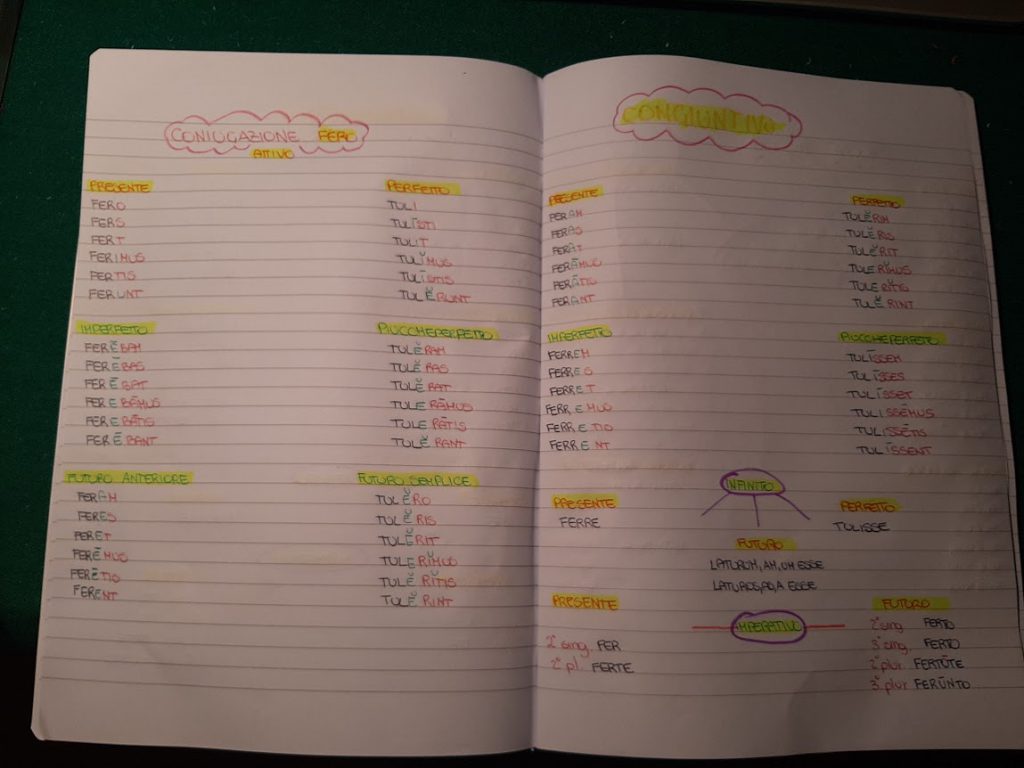 CONIUGAZIONE FERO
ATTIVO
PRESENTE
FERO
FERS
FERT
FERIMUS
FERTIS
FERUNT
PERFETTO
TULI
TULĪSTI
TULIT
TULĬMUS
TULĪSTIS
TULĔRUNT
IMPERFETTO
FERĒBAM
FERĒBAS
FERĒBAT
FEREBĀMUS
FEREBĀTIS
FERĒBANT
PIUCCHEPERFETTO
TULĔRAM
TULĔRAS
TULĔRAT
TULERĀMUS
TULERĀTIS
TULĔRANT
FUTURO ANTERIORE
FERAM
FERES
FERET
FERĒMUS
FERĒTIS
FERENT
FUTURO SEMPLICE
TULĔRO
TULĔRIS
TULĔRIT
TULERĬMUS
TULERĬTIS
TULĔRINT
CONGIUNTIVO
PRESENTE
FERAM
FERAS
FERAT
FERĀMUS
FERĀTIS
FERANT
PERFETTO
TULĔRIM
TULĔRIS
TULĔRIT
TULERĬMUS
TULERĬTIS
TULĔRINT
IMPERFETTO
FERREM
FERRES
FERRET
FERREMUS
FERRETIS
FERRENT
PIUCCHEPERFETTO
TULĪSSEM
TULĪSSES
TULĪSSET
TULISSĒMUS
TULISSĒTIS
TULĪSSENT
INFINITO
PRESENTE
FERRE
PERFETTO
TULISSE
FUTURO
LATURUM, AM, UM ESSE
LATUROS, AS, A ESSE
IMPERATIVO
PRESENTE
2ª sing. FER
2ª pl. FERTE
FUTURO
2ª sing. FERTO
3ª sing. FERTO
2ª plur FERTŌTE
3ª plur FERŪNTO